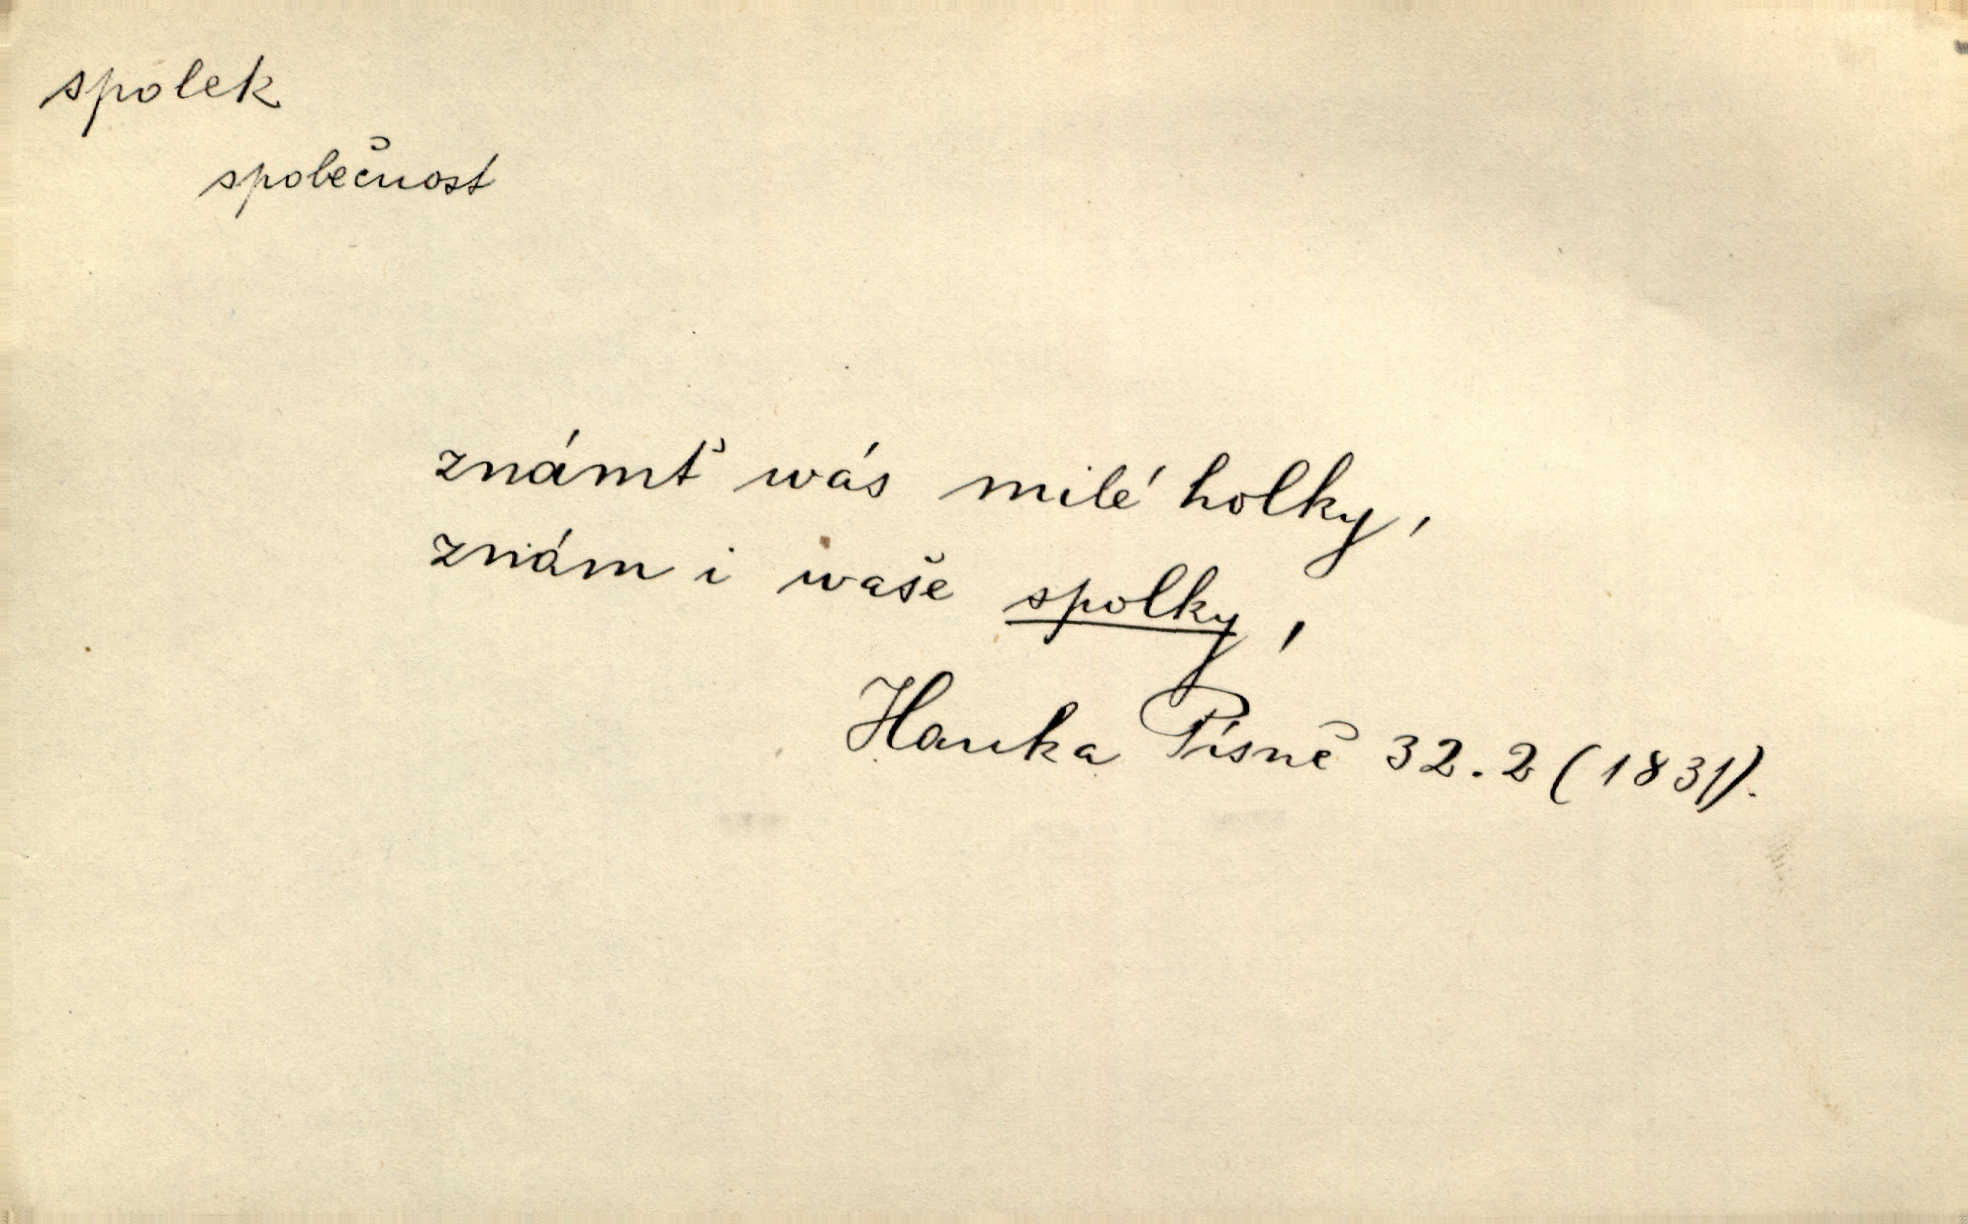 spolek
společnost
známť wás milé holky,
znám i waše spolky,
Hanka Písně 32.2 (1831).